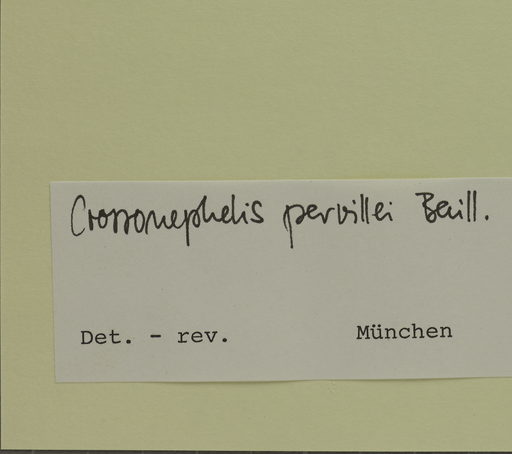 Crossonephelis pervillei Baill.
Det. - rev. München